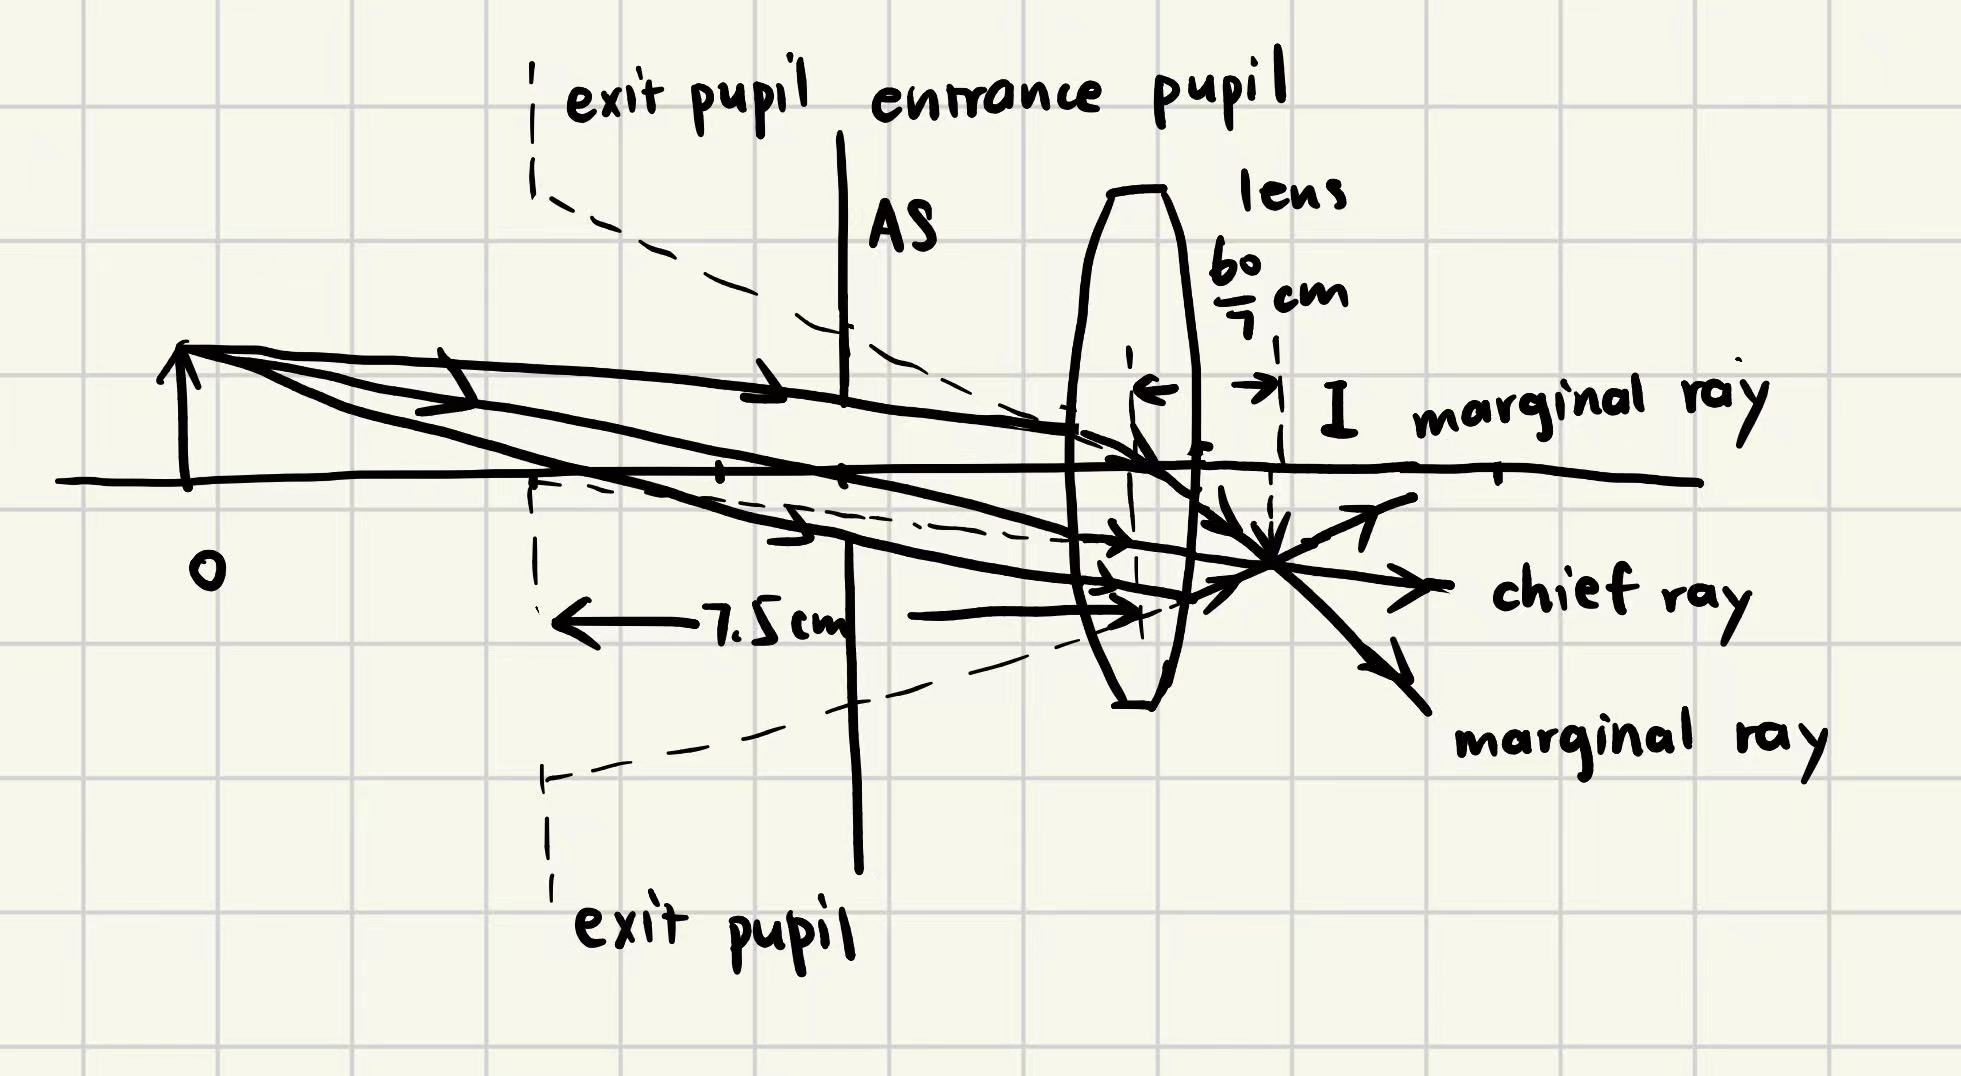 exit pupil entrance pupil
AS
lens
60/7 cm
I
marginal ray
O
chief ray
7.5 cm
marginal ray
exit pupil